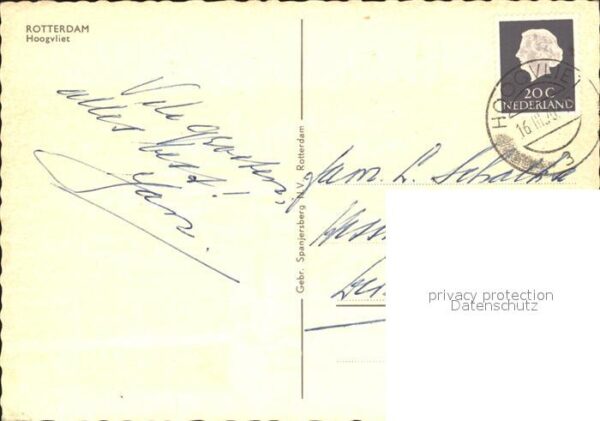 ROTTERDAM
Hoogvliet
Vele groeten,
alles best!
Jan.
Gebr. Spanjersberg N.V. Rotterdam
20 C
NEDERLAND
HOOGVLIET
16
Fam. L.
privacy protection
Datenschutz